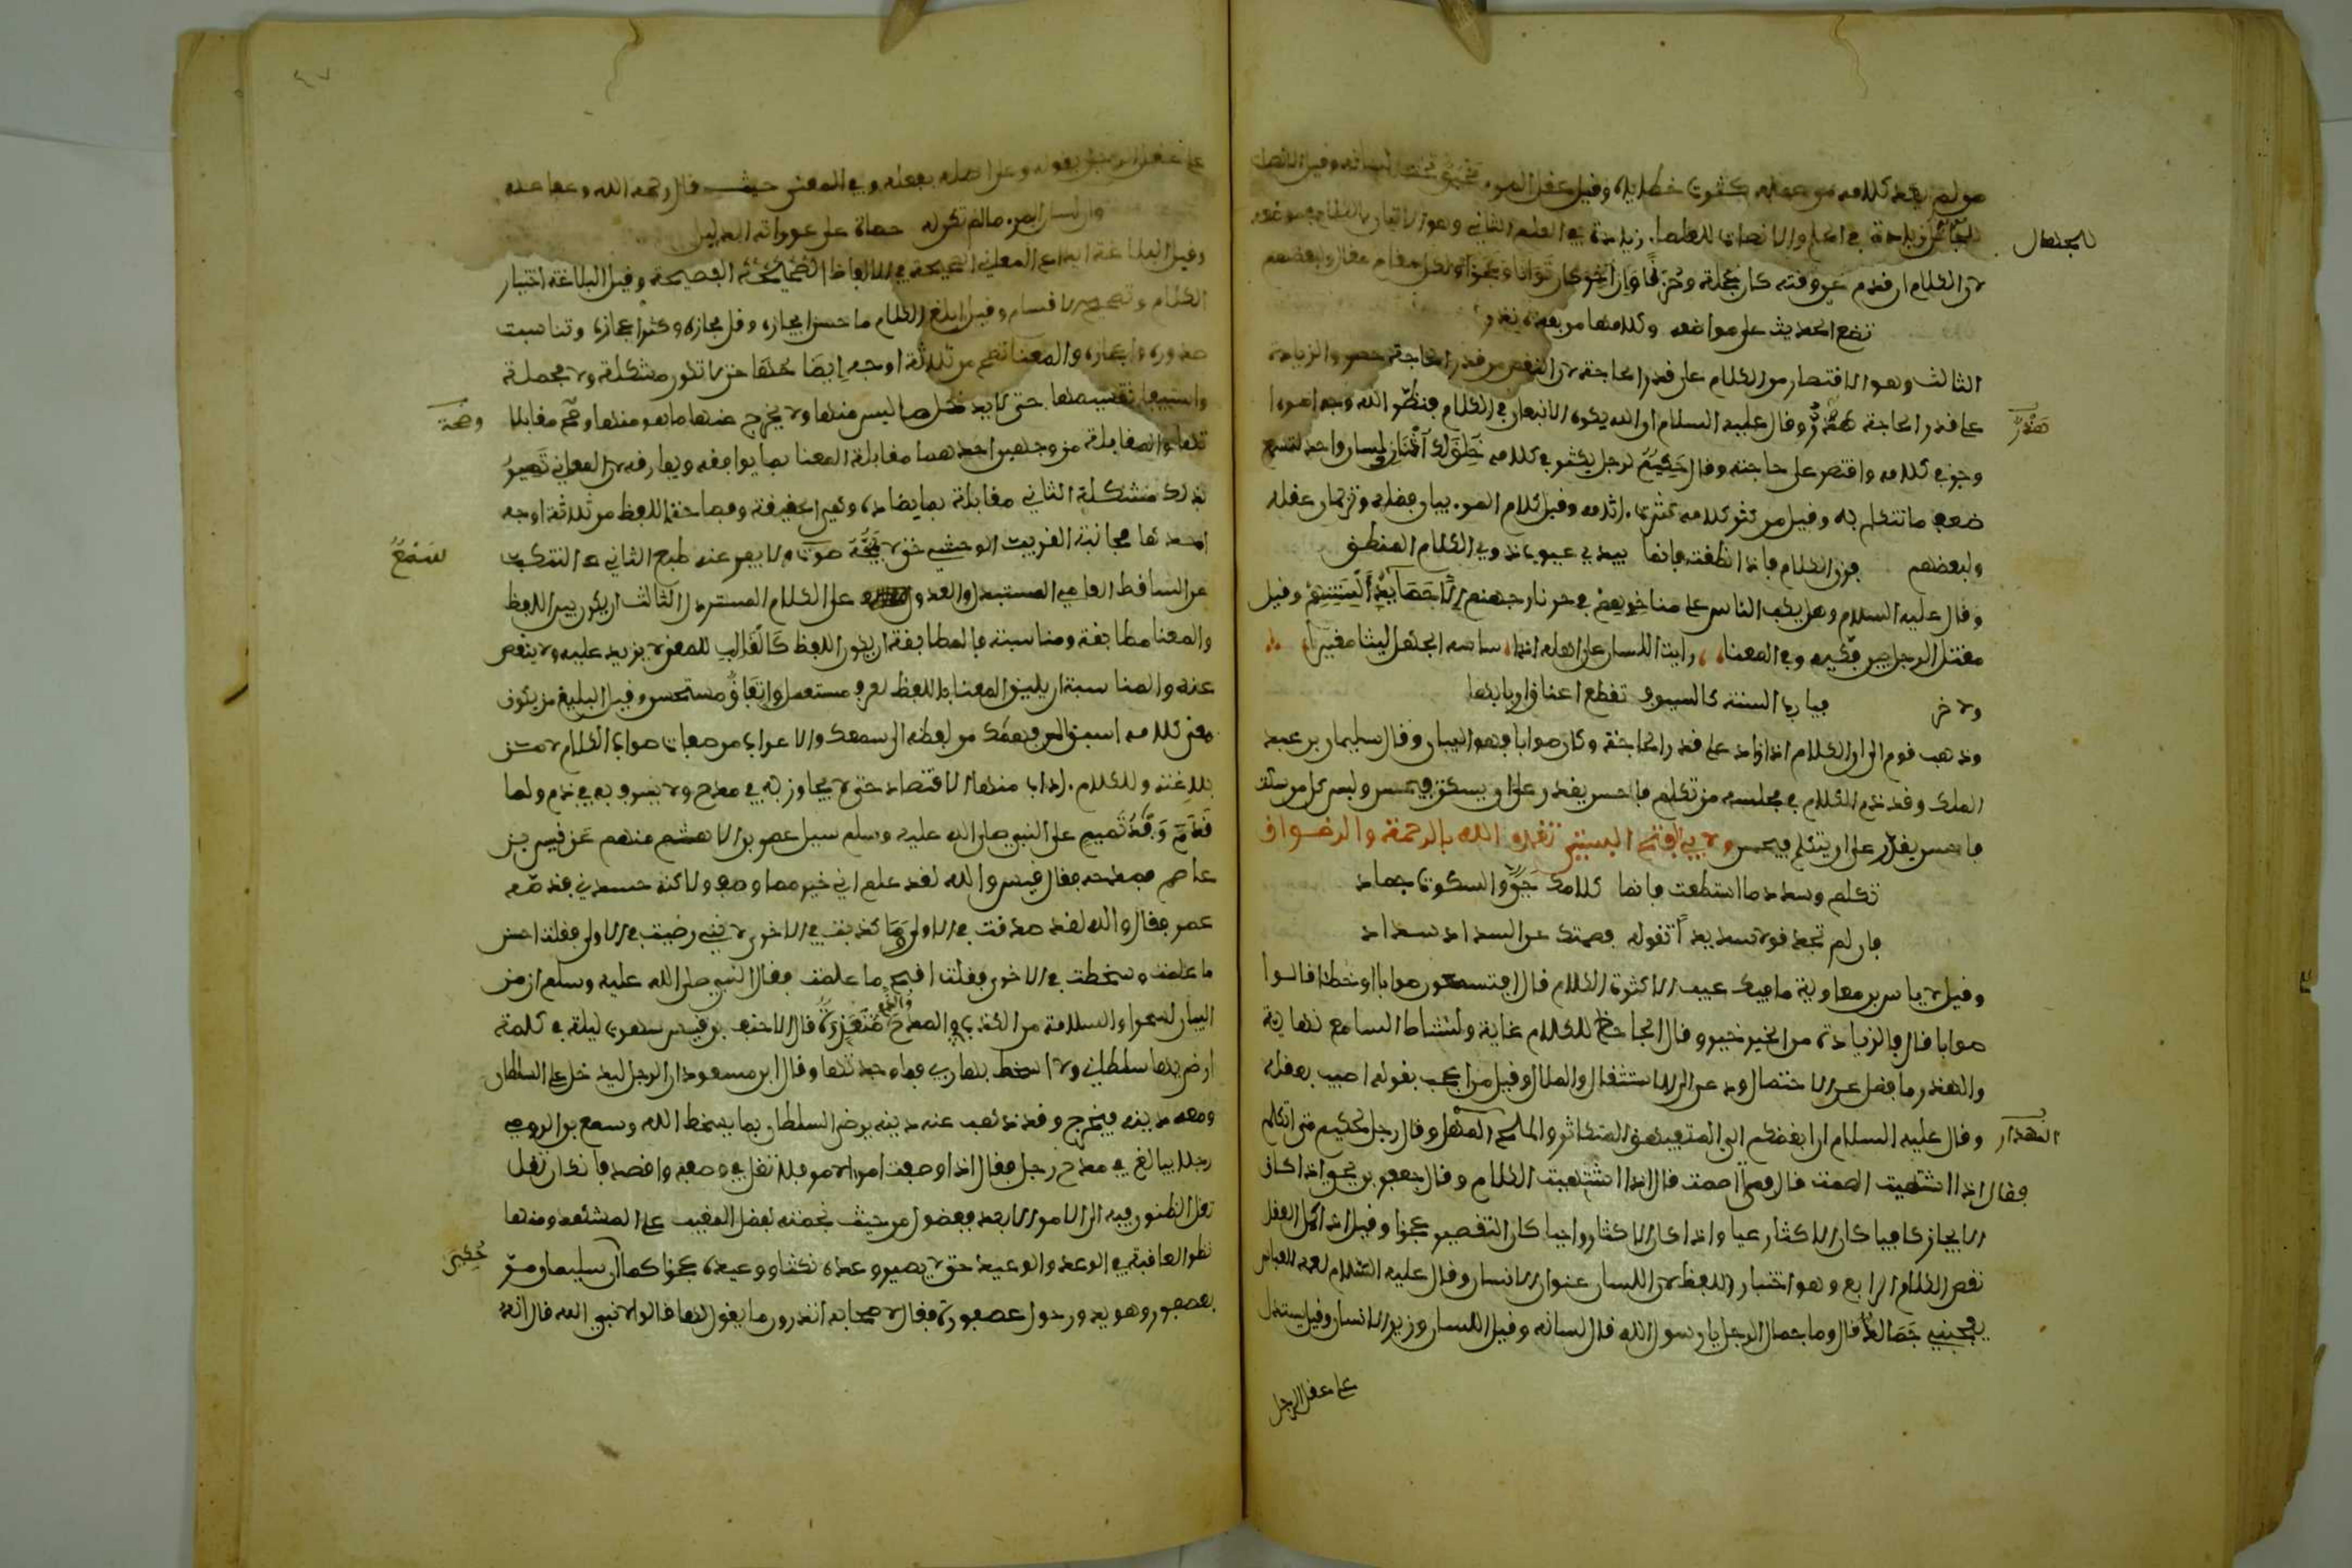 من لم يعد كلامه من عمله كثرت خطاياه وقيل عقل المرء مخبوء تحت لسانه وقيل
للجهال
لأن الكلام إن قدم عن وقته كان عجلة وخرقا وإن أخر كان توانيا وعجزا ولكل مقام مقال ولبعضهم
تضع الحديث على مواضعه وكلامها من بعده نزر
الثالث وهو الاقتصار من الكلام على قدر الحاجة لأن النقص من قدر الحاجة حصر والزيادة
على قدر الحاجة هذر وقال عليه السلام إن الله يكره الانبعاق في الكلام فنضر الله وجه امرئ
هذر
وجز في كلامه واقتصر على حاجته وقال حكيم لرجل يكثر في كلامه خلق لك أذنان ولسان واحد لتسمع
ضعف ما تتكلم به وقيل من كثر كلامه كثرت آثامه وقيل كلام المرء بيان فضله وترجمان عقله
ولبعضهم وزن الكلام فإذا نطقت فإنما يبدي عيوب ذوي الكلام المنطق
وقال عليه السلام وهل يكب الناس على مناخرهم في حر نار جهنم إلا حصائد ألسنتهم وقيل
مقتل الرجل بين فكيه وفي المعنا رأيت اللسان على أهله إذا ساسه الجهل ليثا مغيرا
ولاخر فيا رب السنة كالسيوف تقطع اعناق اربابها
وذهب قوم الى ان الكلام اذا زاد على قدر الحاجة وكان صوابا فهو البيان وقال سليمان بن عبد
الملك وقد ذم الكلام في مجلسه من تكلم فاحسن يقدر على ان يسكت فيحسن وليس كل من سكت
فاحسن يقدر على ان يتكلم فيحسن ولابي الفتح البستي تغمده الله بالرحمة والرضوان
تكلم وسدد ما استطعت فانما كلامك حي والسكوت جماد
فان لم تجد قولا سديدا تقوله فصمتك عن السداد سداد
وقيل لاياس بن معاوية ما فيك عيب الا كثرة الكلام قال افتسمعون صوابا او خطأ قالوا
صوابا قال فالزيادة من الخير خير وقال الجاحظ للكلام غاية ولنشاط السامع نهاية
والهذر ما فضل عن الاحتمال ودعى الى الاستثقال والملال وقيل من اعجب بقوله اصيب بعقله
وقال عليه السلام ان ابغضكم الي المتفيهق المكثار والملح المهذار وقال رجل لحكيم متى اتكلم
المهذار
فقال اذا اشتهيت الصمت قال فمتى اصمت قال اذا اشتهيت الكلام وقال جعفر بن يحيى اذا كان
الايجاز كافيا كان الاكثار عيا واذا كان الاكثار واجبا كان التقصير عجزا وقيل اذا كمل العقل
نقص الكلام الرابع وهو اختيار اللفظ لان اللسان عنوان الانسان وقال عليه السلام لعمه العباس
يعجبني جمالك قال وما جمال الرجل يا رسول الله قال لسانه وقيل اللسان وزير الانسان وقيل يستدل
على عقل الرجل
على عقل الرجل بقوله وعلى اصله بفعله وفي المعنى حيث قال رحمه الله وعفا عنه
وان لسان المرء ما لم تكن له حصاة على عوراته لدليل
وقيل البلاغة ايداع المعاني الصحيحة في الالفاظ الفصيحة وقيل البلاغة اختيار
الكلام وتصحيح الاقسام وقيل ابلغ الكلام ما حسن ايجازه وقل مجازه وكثر اعجازه وتناسبت
صدوره واعجازه والمعنا تصح من ثلاثة اوجه ايضاحها حتى لا تكون مشكلة ولا مجملة
واستيفا تقسيمها حتى لا يدخل ما ليس منها ولا يخرج عنها ما هو منها وصحة مقابلا
وصحة
تها والمقابلة من وجهين احدهما مقابلة المعنا بما يوافقه ويقاربه لان المعاني تصير
بذلك متشكلة الثاني مقابلة بما يضاده وهي الحقيقة وفصاحة اللفظ من ثلاثة اوجه
احدها مجانبة الغريب الوحشي حتى لا يمجه صوت ولا ينفر عنه طبع الثاني التنكب
سمع
عن الساقط العامي المستبذل والعدول عن الكلام المسترذل الثالث ان يكون بين اللفظ
والمعنا مطابقة ومناسبة فالمطابقة ان يكون اللفظ كالقالب للمعنى لا يزيد عليه ولا ينقص
عنه والمناسبة ان يليق المعنا باللفظ لعرف مستعمل او اتفاق مستحسن وقيل البليغ من يكون
معنى كلامه اسبق الى فهمك من لفظه الى سمعك والاعراب من صفات صواب الكلام
بلاغته وللكلام اداب منها الاقتصاد حتى لا يجاوز به في مدح ولا يسرف به في ذم ولما
قدم وفد تميم على النبي صلى الله عليه وسلم سيل عمر بن الاهتم منهم عن قيس بن
عاصم فمدحه فقال قيس والله لقد علم اني خير مما وصف ولاكنه حسدني فذمه
عمر فقال والله لقد صدقت في الاولى وما كذبت في الاخرى لانني رضيت في الاولى فقلت احسن
ما علمت وسخطت في الاخرى فقلت اقبح ما علمت فقال النبي صلى الله عليه وسلم ان من
البيان لسحرا والسلامة من الكذب في المدح والذم متعذرة قال الاحنف بن قيس سهرت ليلة في كلمة
ارضي بها سلطاني ولا اسخط بها ربي فما وجدتها وقال ابن مسعود ان الرجل ليدخل على السلطان
ومعه دينه فيخرج وقد ذهب عنه دينه يرضي السلطان بما يسخط الله وسمع بن الرومي
رجلا يبالغ في مدح رجل فقال اذا وصفت امرأ لامرئ فلا تغل في وصفه واقصد فانك ان تغل
تغل الظنون فيه الى الامد الابعد فيضؤل من حيث عظمته لفضل المغيب على المشهد ومنها
نظر العاقبة في الوعد والوعيد حتى لا يصير وعده نكثا ووعيده عجزا كما ان سليمان مر
حكي
بعصفور وهو يدور حول عصفورة فقال لاصحابه اتدرون ما يقول لها قالوا لا نبي الله قال انه